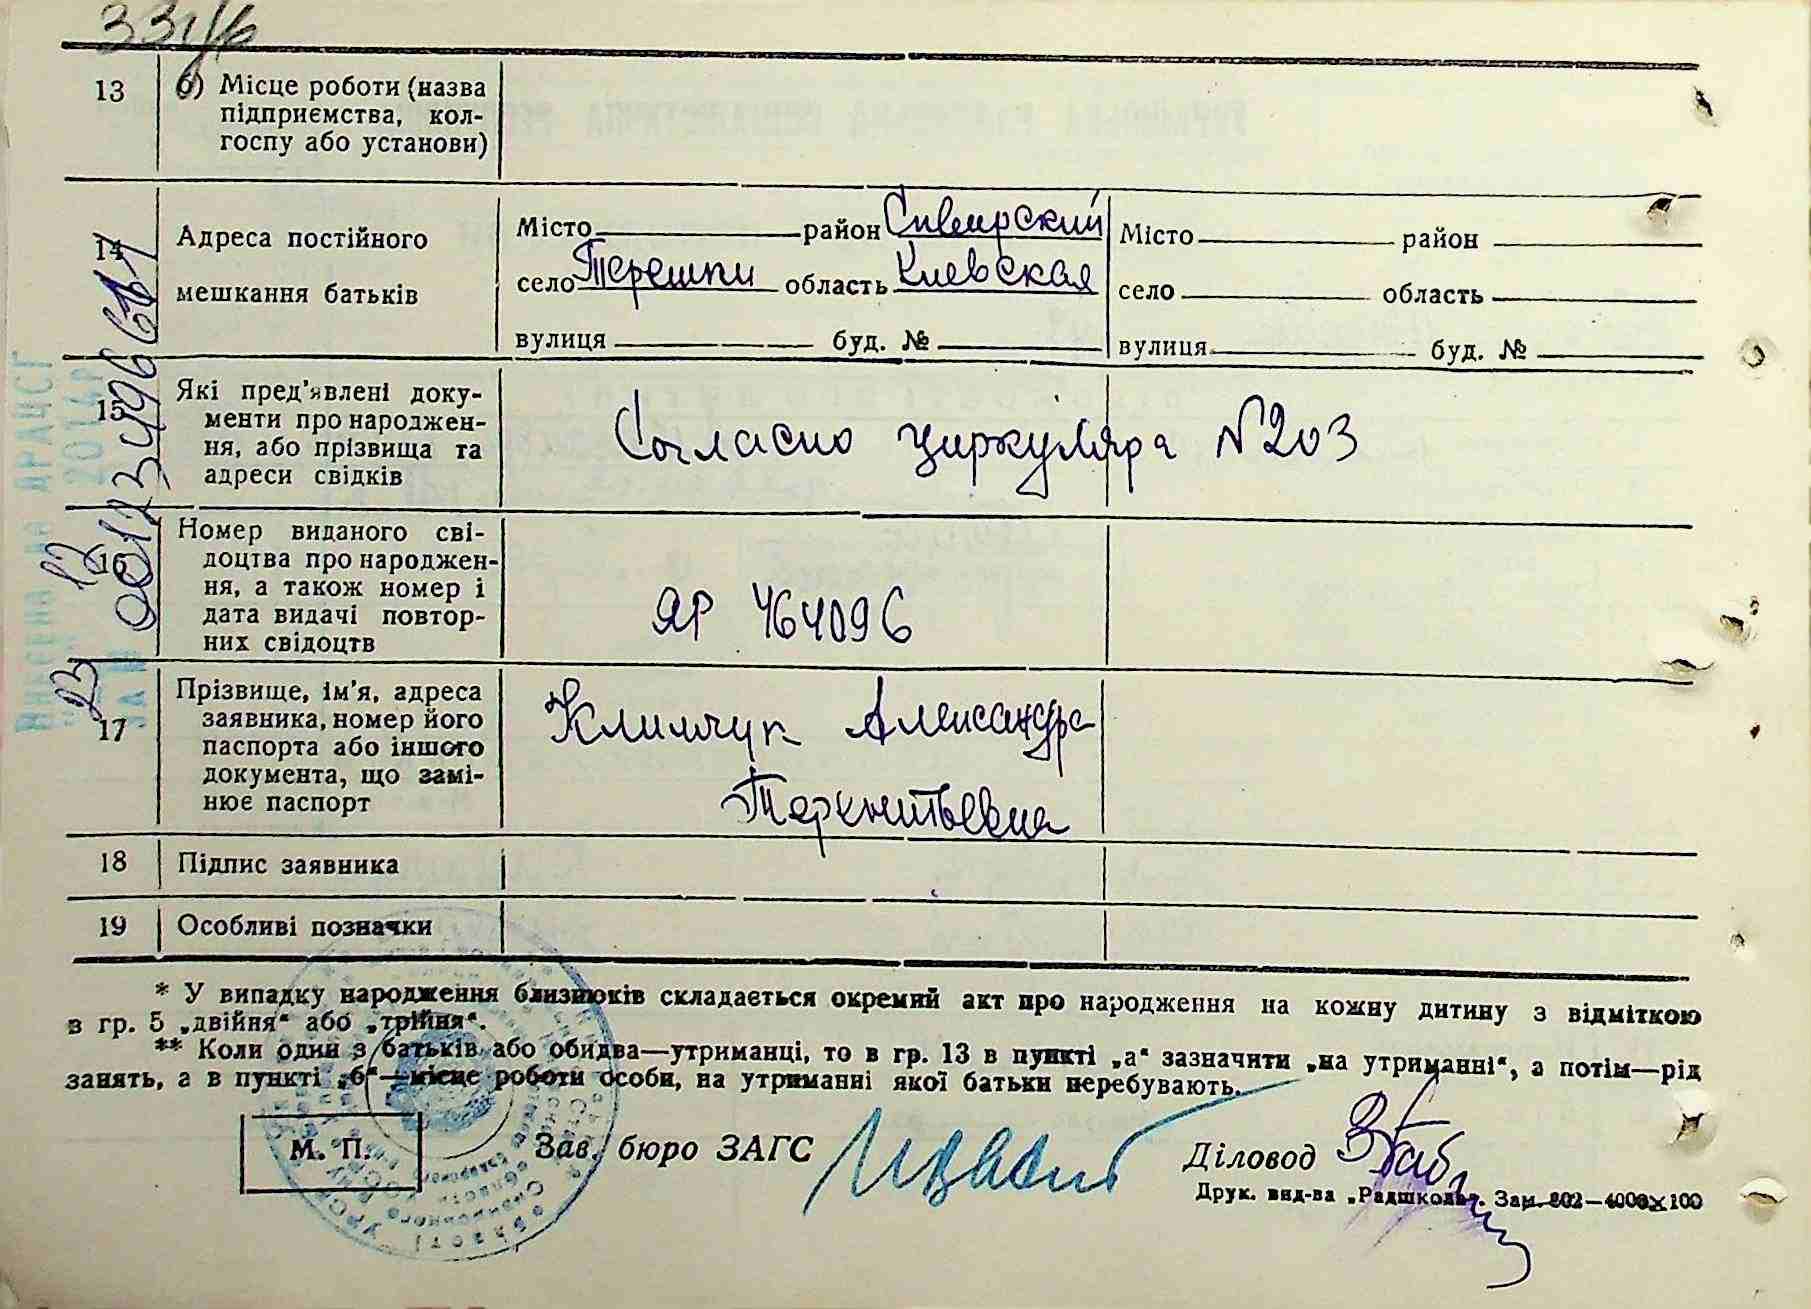 331/6
13 б) Місце роботи (назва
підприємства, кол-
госпу або установи)
14 Адреса постійного
мешкання батьків
Місто район Сквирский
село Терешки область Киевская
вулиця буд. №
Місто район
село область
вулиця буд. №
15 Які пред’явлені доку-
менти про народжен-
ня, або прізвища та
адреси свідків
Согласно циркуляра №203
16 Номер виданого сві-
доцтва про народжен-
ня, а також номер і
дата видачі повтор-
них свідоцтв
ЯР 464096
17 Прізвище, ім’я, адреса
заявника, номер його
паспорта або іншого
документа, що замі-
нює паспорт
Климчук Александра
Терентьевна
18 Підпис заявника
19 Особливі позначки
* У випадку народження близнюків складається окремий акт про народження на кожну дитину з відміткою
в гр. 5 „двійня“ або „трійня“.
** Коли один з батьків або обидва—утриманці, то в гр. 13 в пункті „а“ зазначити „на утриманні“, а потім—рід
занять, а в пункті „б“—місце роботи особи, на утриманні якої батьки перебувають.
М. П.
Зав. бюро ЗАГС
Діловод
Друк. вид-ва „Радшкола“. Зам. 802—4000х100